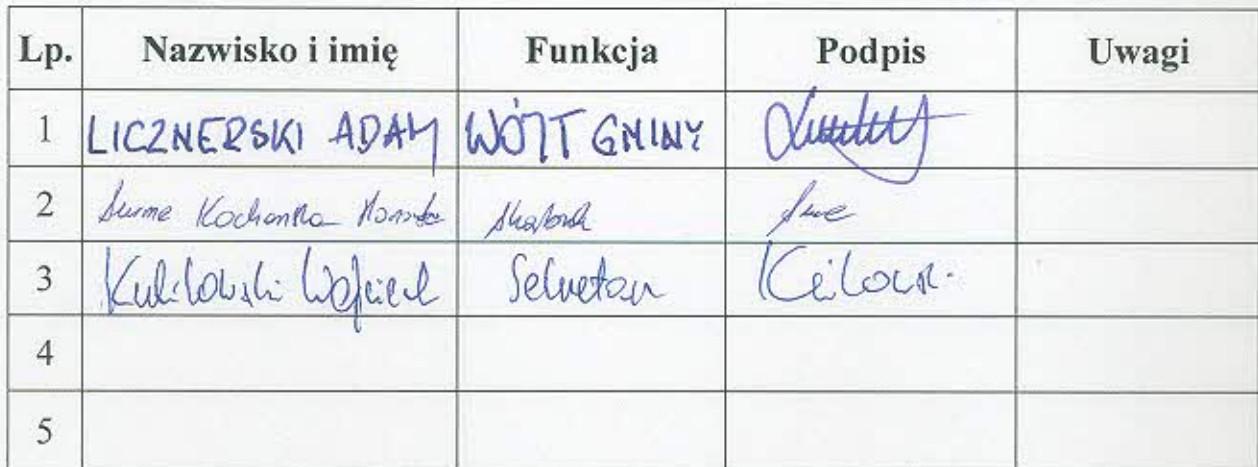 Lp. Nazwisko i imię Funkcja Podpis Uwagi
1 LICZNERSKI ADAM WÓJT GMINY
2 Kochanka Skarbnik
3 Kulikowski Wojciech Sekretarz
4
5